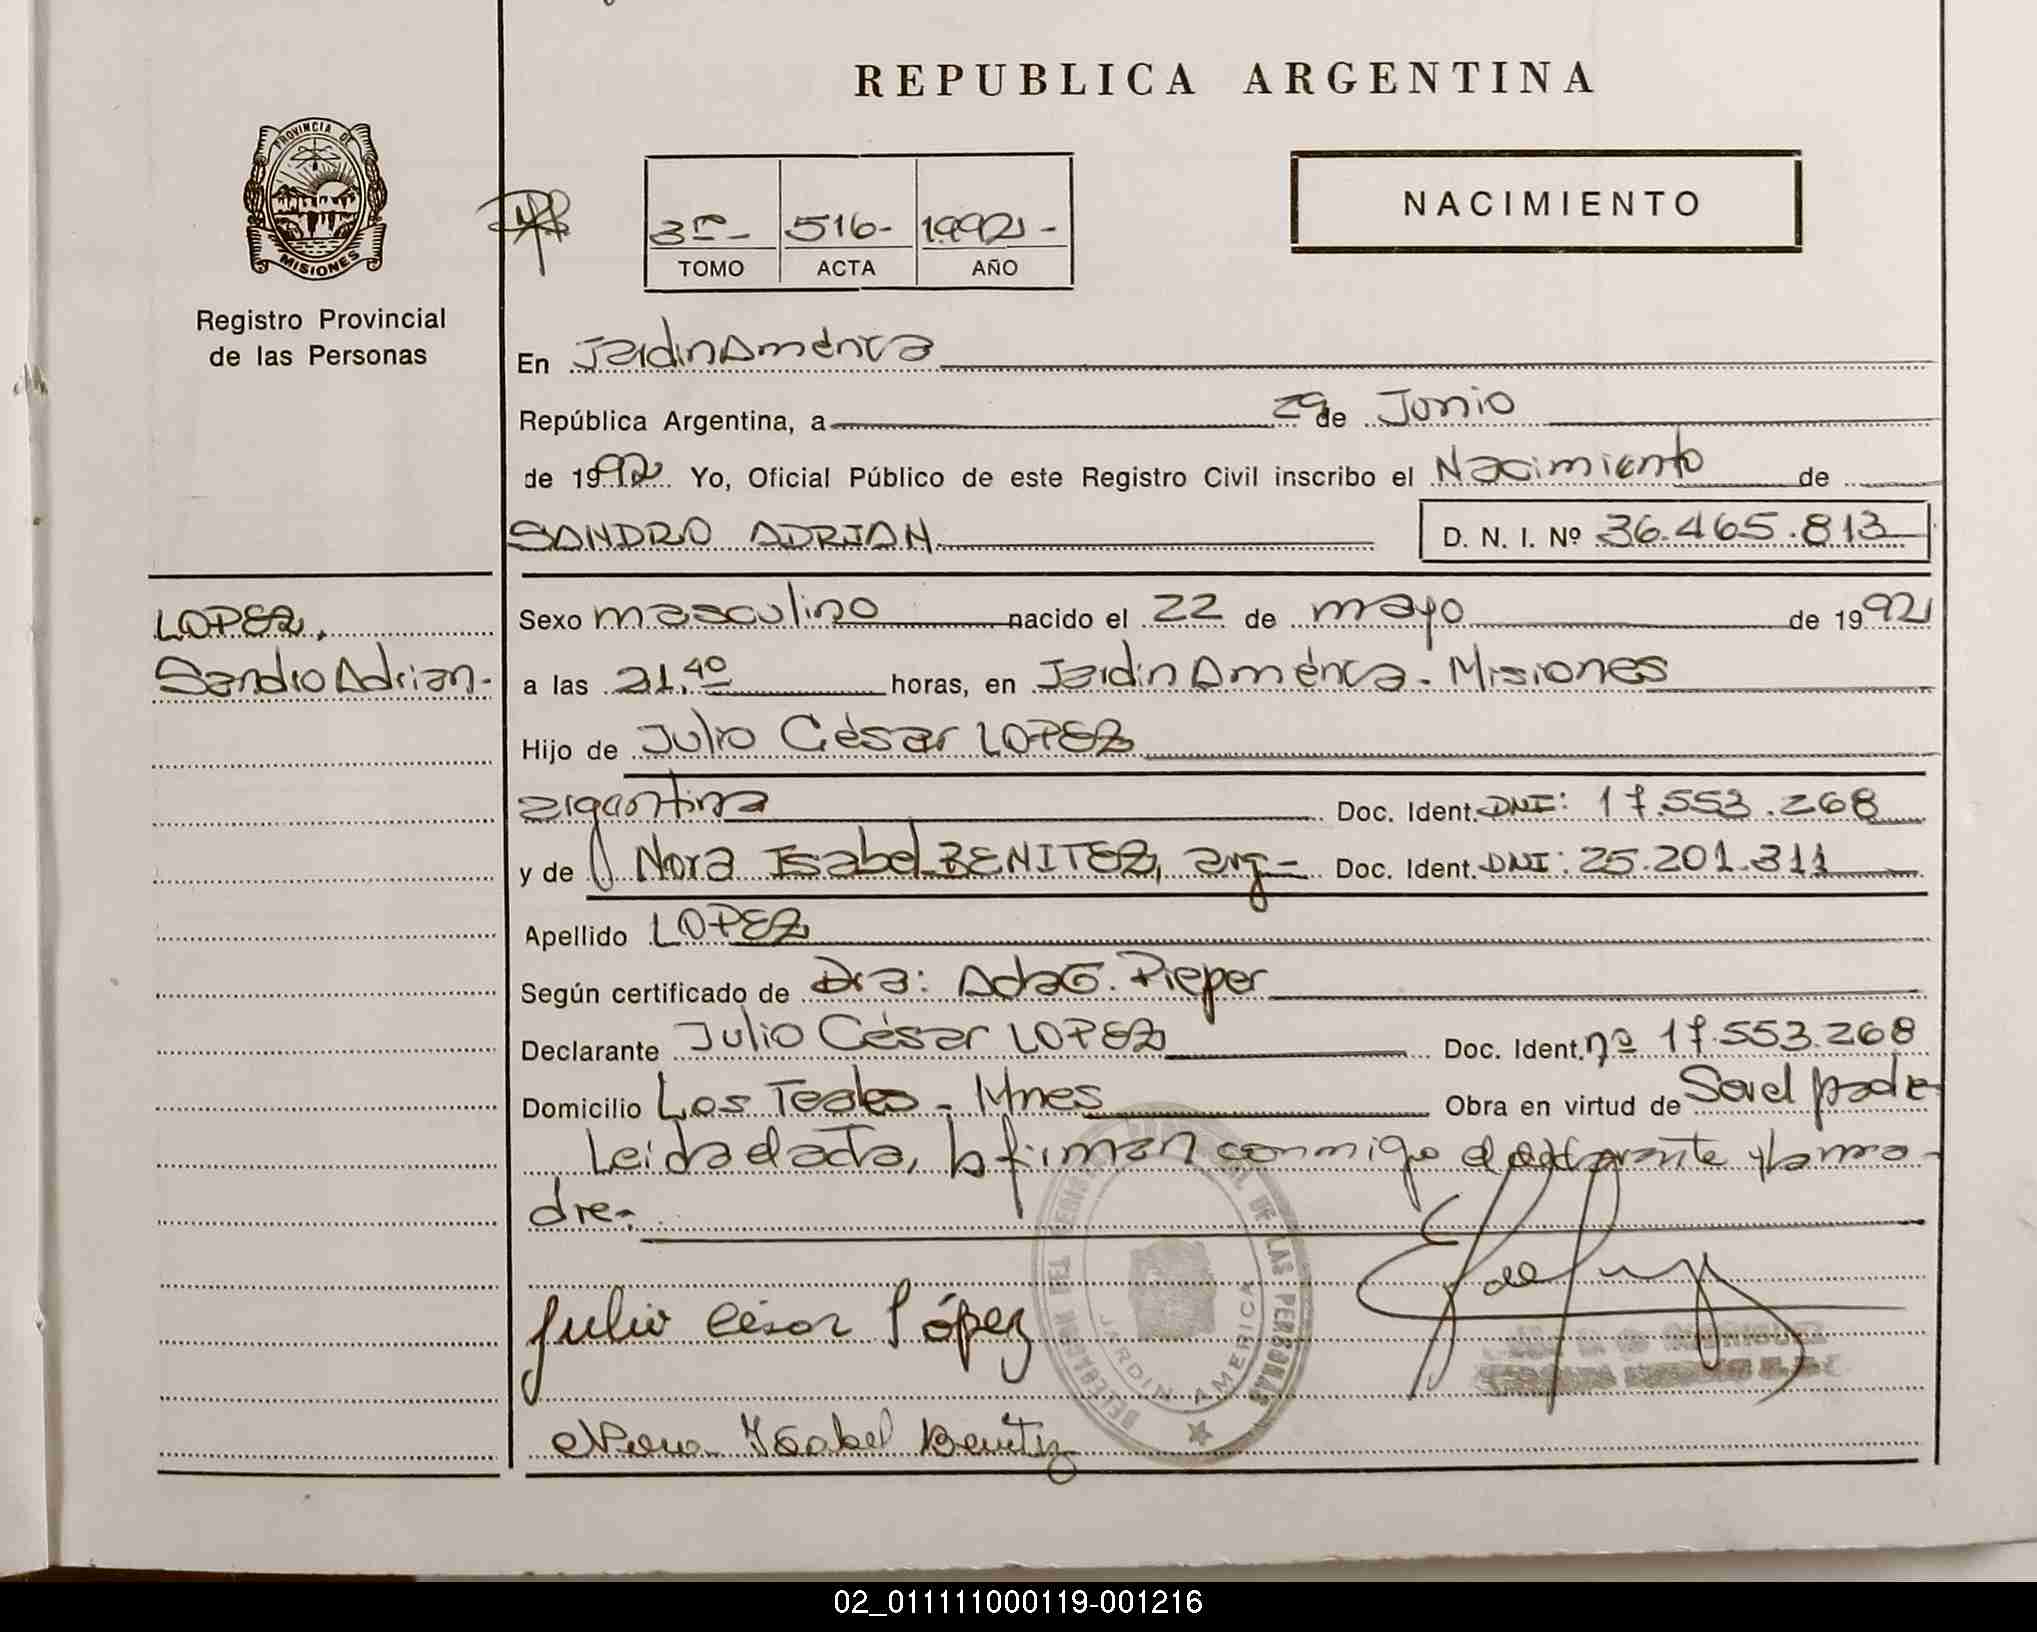 REPUBLICA ARGENTINA
PROVINCIA DE
MISIONES
Registro Provincial
de las Personas
3ro- 516- 1992-
TOMO ACTA AÑO
NACIMIENTO
En Jardin América
República Argentina, a 29 de Junio
de 1992 Yo, Oficial Público de este Registro Civil inscribo el Nacimiento de
SANDRO ADRIAN D. N. I. Nº 36.465.813
LOPEZ,
Sandro Adrian-
Sexo masculino nacido el 22 de mayo de 1992
a las 21,40 horas, en Jardin América - Misiones
Hijo de Julio César LOPEZ
argentina Doc. Ident. DNI: 17.553.268
y de Nora Isabel BENITEZ, arg- Doc. Ident. DNI: 25.201.311
Apellido LOPEZ
Según certificado de Dra: Ada G. Pieper
Declarante Julio César LOPEZ Doc. Ident. nº 17.553.268
Domicilio Los Teales - Mnes Obra en virtud de Ser el padre
Leida el acta, la firman conmigo el declarante y la ma-
dre-
Julio César López
Nora Isabel Benitez
DELEGACION DEL REGISTRO PROVINCIAL DE LAS PERSONAS
JARDIN AMERICA
02_011111000119-001216